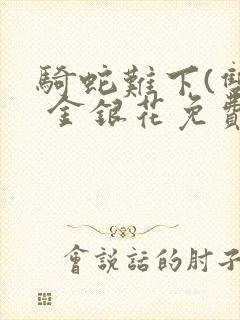 騎蛇難下(雙
金銀花免費
會說話的肘子